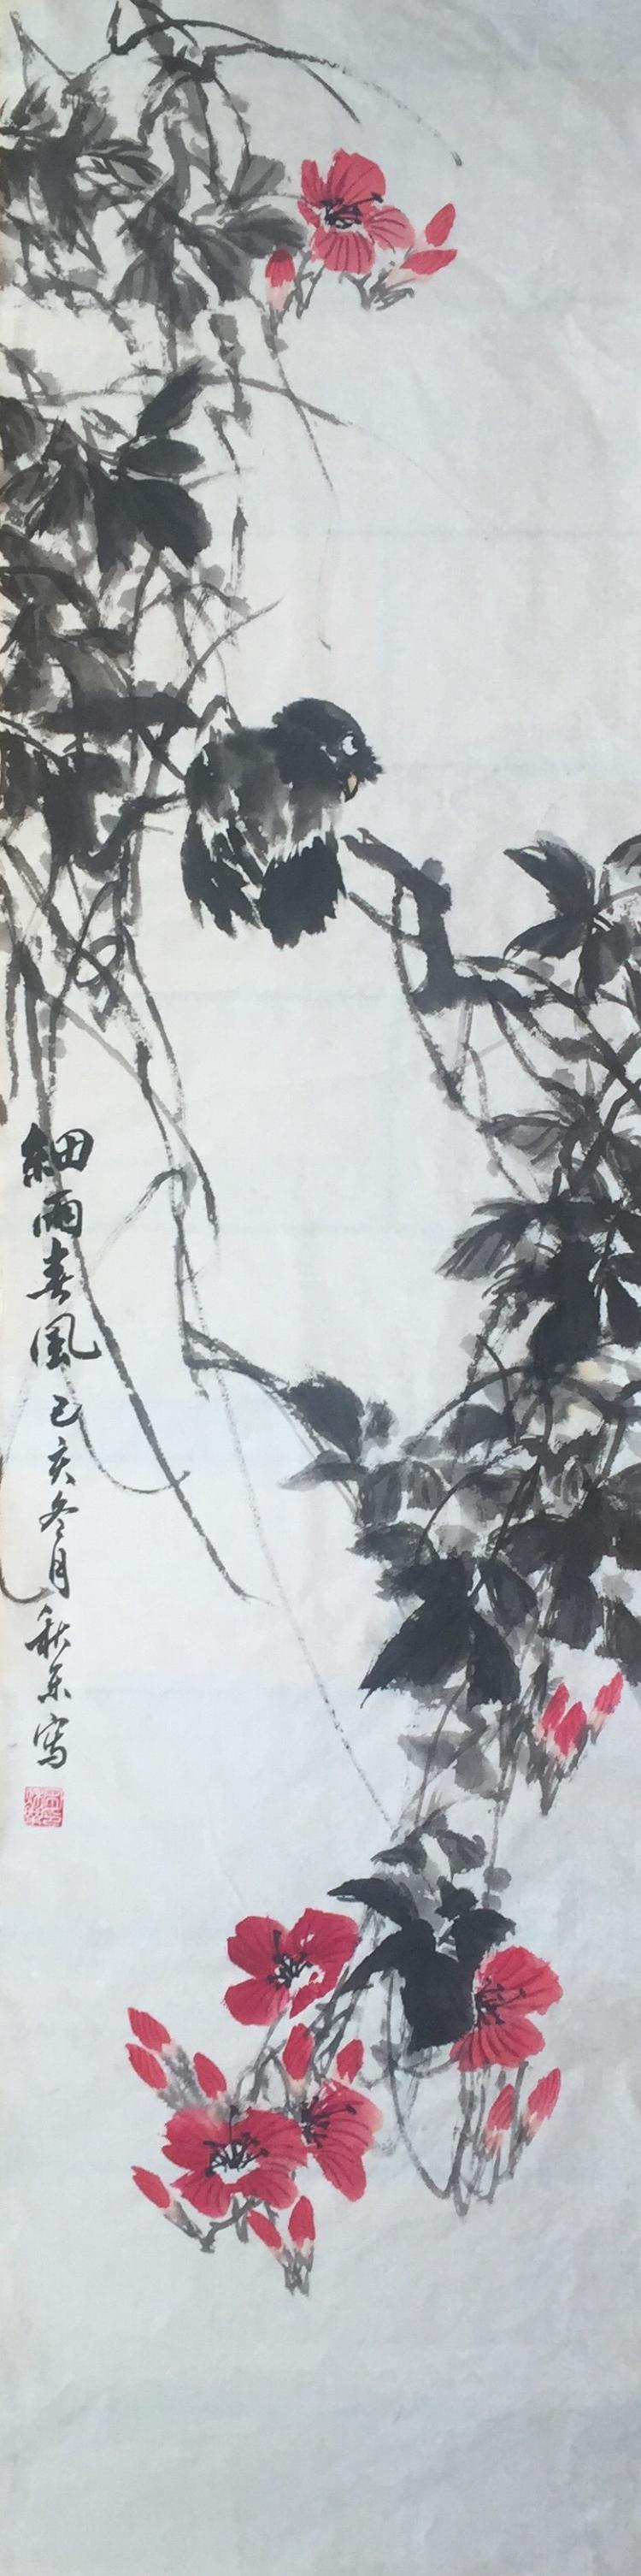 細雨春風己亥冬月秋樂寫